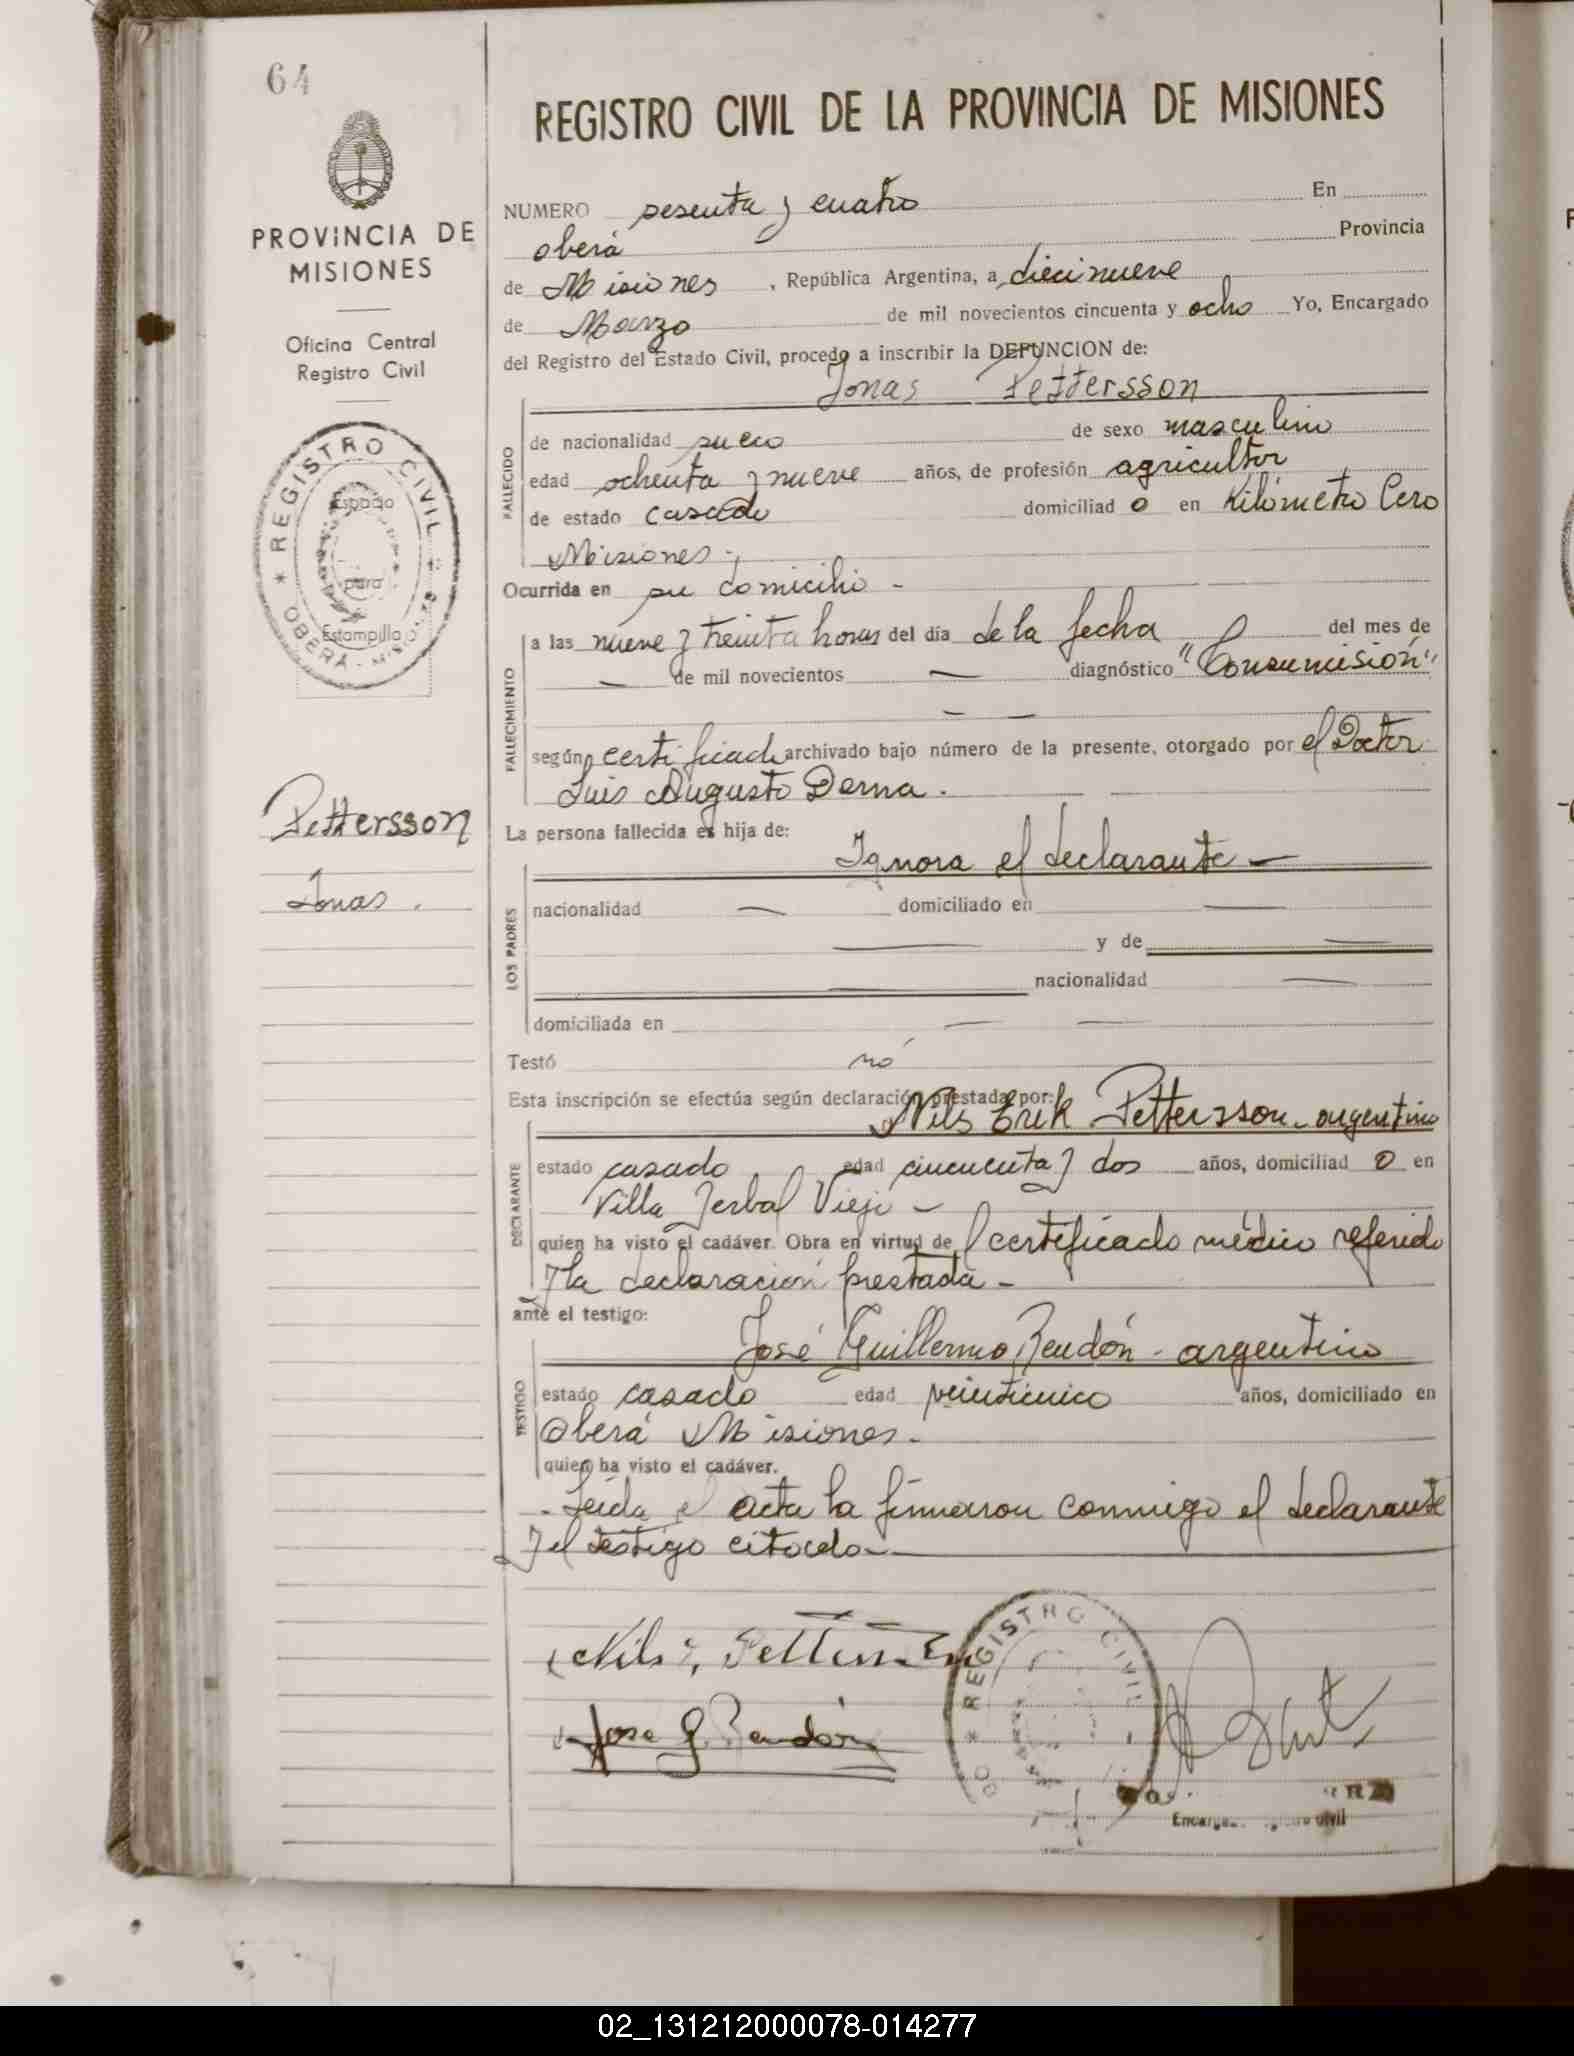 64
REGISTRO CIVIL DE LA PROVINCIA DE MISIONES
PROVINCIA DE
MISIONES
Oficina Central
Registro Civil
* REGISTRO CIVIL *
Espacio
para
Estampilla
OBERÁ - MISIO
Pettersson
Jonas.
NUMERO sesenta y cuatro En
oberá Provincia
de Misiones, República Argentina, a diecinueve
de Marzo de mil novecientos cincuenta y ocho Yo, Encargado
del Registro del Estado Civil, procedo a inscribir la DEFUNCION de:
Jonas Pettersson
FALLECIDO
de nacionalidad sueco de sexo masculino
edad ochenta y nueve años, de profesión agricultor
de estado casado domiciliad o en Kilómetro Cero
Misiones.-
Ocurrida en su domicilio -
FALLECIMIENTO
a las nueve y treinta horas del día de la fecha del mes de
— de mil novecientos — diagnóstico "Consumisión"
— —
según certificado archivado bajo número de la presente, otorgado por el Doctor
Luis Augusto Derna.
La persona fallecida es hija de:
Ignora el declarante —
LOS PADRES
nacionalidad — domiciliado en —
— y de —
— nacionalidad —
domiciliada en — —
Testó no
Esta inscripción se efectúa según declaración prestada por:
Nils Erik Pettersson - argentino
DECLARANTE
estado casado edad cincuenta y dos años, domiciliad o en
Villa Yerbal Viejo -
quien ha visto el cadáver. Obra en virtud del certificado médico referido
y la declaración prestada -
ante el testigo:
José Guillermo Rendón - argentino
TESTIGO
estado casado edad veinticinco años, domiciliado en
Oberá Misiones.
quien ha visto el cadáver.
- Leída el acta la firmaron conmigo el declarante
y el testigo citado-
Nils E. Pettersson
Jose G. Rendón
* REGISTRO CIVIL
Registro Civil
02_131212000078-014277